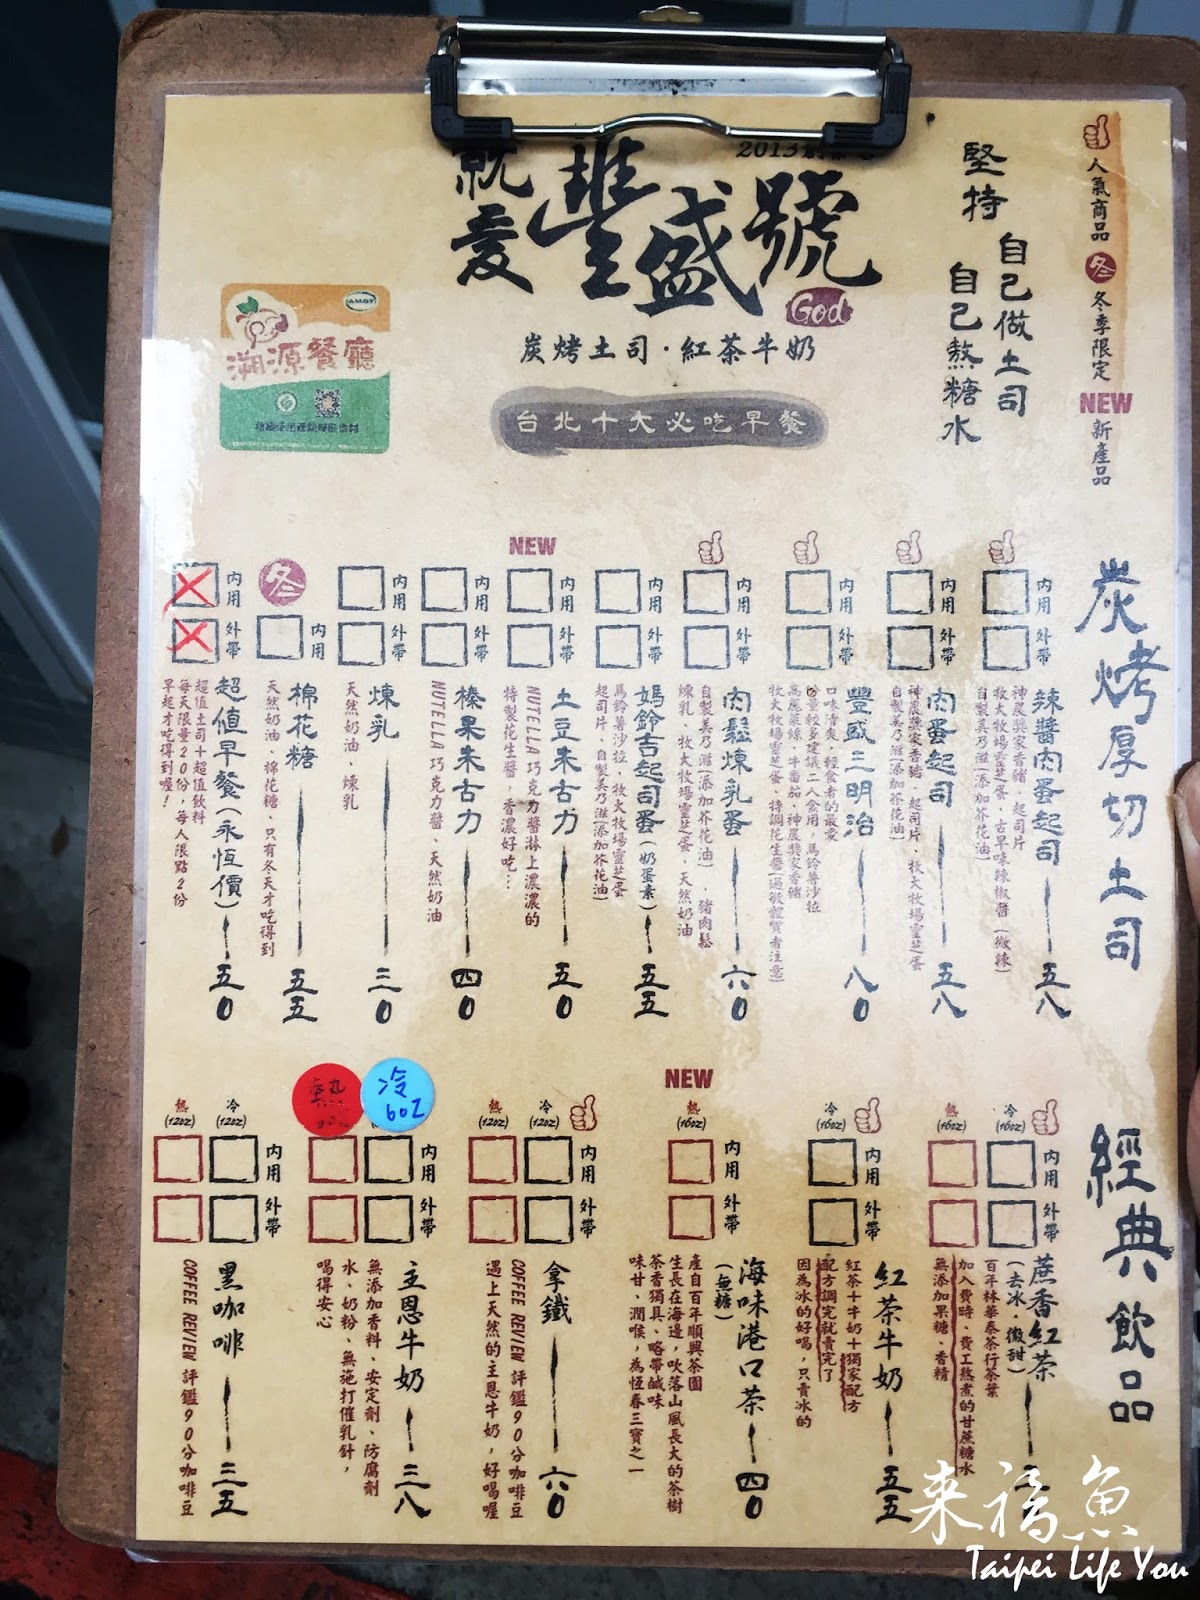 人氣商品
冬 冬季限定
NEW 新產品
堅持
自己做土司
自己熬糖水
就愛
豐盛號
God
炭烤土司·紅茶牛奶
台北十大必吃早餐
溯源餐廳
炭烤厚切土司
內用
外帶
辣醬肉蛋起司 五八
神農獎家香豬、起司片
牧大牧場靈芝蛋、古早味辣椒醬(微辣)
自製美乃滋(添加芥花油)
內用
外帶
肉蛋起司 五八
神農獎家香豬、起司片、牧大牧場靈芝蛋
自製美乃滋(添加芥花油)
內用
外帶
豐盛三明治 八0
口味清爽，輕食者的最愛
份量較多建議二人食用，馬鈴薯沙拉
高麗菜絲、牛番茄、神農獎家香豬
牧大牧場靈芝蛋、特調花生醬(過敏體質者注意)
內用
外帶
肉鬆煉乳蛋 六0
自製美乃滋(添加芥花油)、豬肉鬆
煉乳、牧大牧場靈芝蛋、天然奶油
內用
外帶
媽鈴吉起司蛋(奶蛋素) 五五
馬鈴薯沙拉、牧大牧場靈芝蛋
起司片、自製美乃滋(添加芥花油)
NEW
內用
外帶
土豆朱古力 五0
NUTELLA 巧克力醬淋上濃濃的
特製花生醬，香濃好吃…
內用
外帶
榛果朱古力 四0
NUTELLA 巧克力醬、天然奶油
內用
外帶
煉乳 三0
天然奶油、煉乳
冬
內用
棉花糖 五五
天然奶油、棉花糖、只有冬天才吃得到
內用
外帶
超值早餐(永恆價) 五0
超值土司+超值飲料
每天限量20份，每人限點2份
早起才吃得到喔！
經典飲品
冷(16oz)
熱(16oz)
內用
外帶
蔗香紅茶
(去冰·微甜)
百年林華泰茶行茶葉
加入費時、費工熬煮的甘蔗糖水
無添加果糖、香精
冷(16oz)
內用
外帶
紅茶牛奶 五五
紅茶+牛奶+獨家配方
配方調完就賣完了
因為冰的好喝，只賣冰的
NEW
熱(16oz)
內用
外帶
海味港口茶 四0
(無糖)
產自百年順興茶園
生長在海邊，吹落山風長大的茶樹
茶香獨具、略帶鹹味
味甘、潤喉，為恆春三寶之一
冷(12oz)
熱(12oz)
內用
外帶
拿鐵 六0
COFFEE REVIEW 評鑑90分咖啡豆
遇上天然的主恩牛奶，好喝喔
冷 60Z
熱
內用
外帶
主恩牛奶 三八
無添加香料、安定劑、防腐劑
水、奶粉、無施打催乳針，
喝得安心
冷(12oz)
熱(12oz)
內用
外帶
黑咖啡 三五
COFFEE REVIEW 評鑑90分咖啡豆
來福魚
Taipei Life You